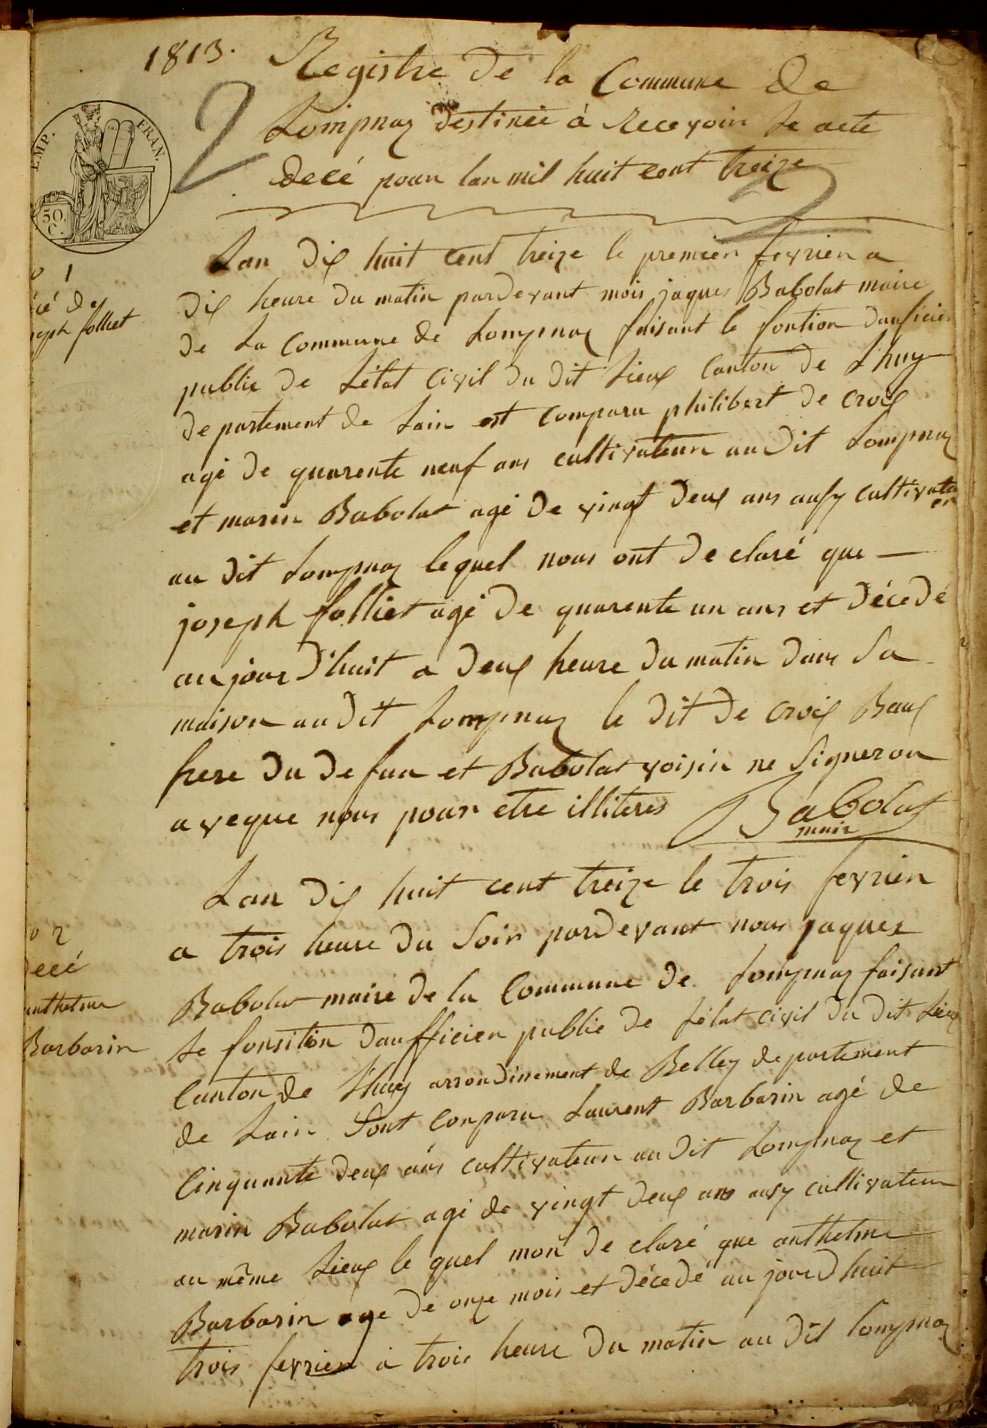 1813.
Registre de la Commune de
Lompnaz destinée à Recevoir Le acte
decé pour lan mil huit cent treize
EMP. FRAN.
50. C.
o 1
cé de
seph folliet
Lan dix huit cent treize le premier fevrier a
dix heure du matin pardevant mois jaques Babolat maire
de La Commune de Lompnaz faisant le fontion daufficier
publie de Létat Civil du dit Lieux Canton de Lhuy
departement de Lain est comparu philibert de croix
agé de quarente neuf ans cultivateur au dit Lompnaz
et marin Babolat agé de vingt deux ans ausy cultivateur
au dit Lompnaz lequel nous ont de claré que —
joseph folliet agé de quarente un ans et décedé
au jour d'huit a deux heure du matin dans Sa
maison au dit Lompnaz le dit de croix Baux
frere du de fun et Babolat voisin ne Signeron
aveque nous pour etre illiteres Babolat
maire
o 2
decé
anthelme
Barbarin
Lan dix huit cent treize le trois fevrier
a trois heure du Soir pardevant nous jaques
Babolat maire de la Commune de Lompnaz faisant
Le fonsition daufficier publie de Létat civil du dit Lieux
Canton de Lhuy arrondinement de Belley departement
de Lain Sont Conparu Laurent Barbarin agé de
Cinquante deux ans cultivateur au dit Lompnaz et
marin Babolat agé de vingt deux ans ausy cultivateur
au même Lieux le quel mon de claré que anthelme
Barbarin age de onze mois et décedé au jour d huit
trois fevrier a trois heure du matin au dit Lompnaz